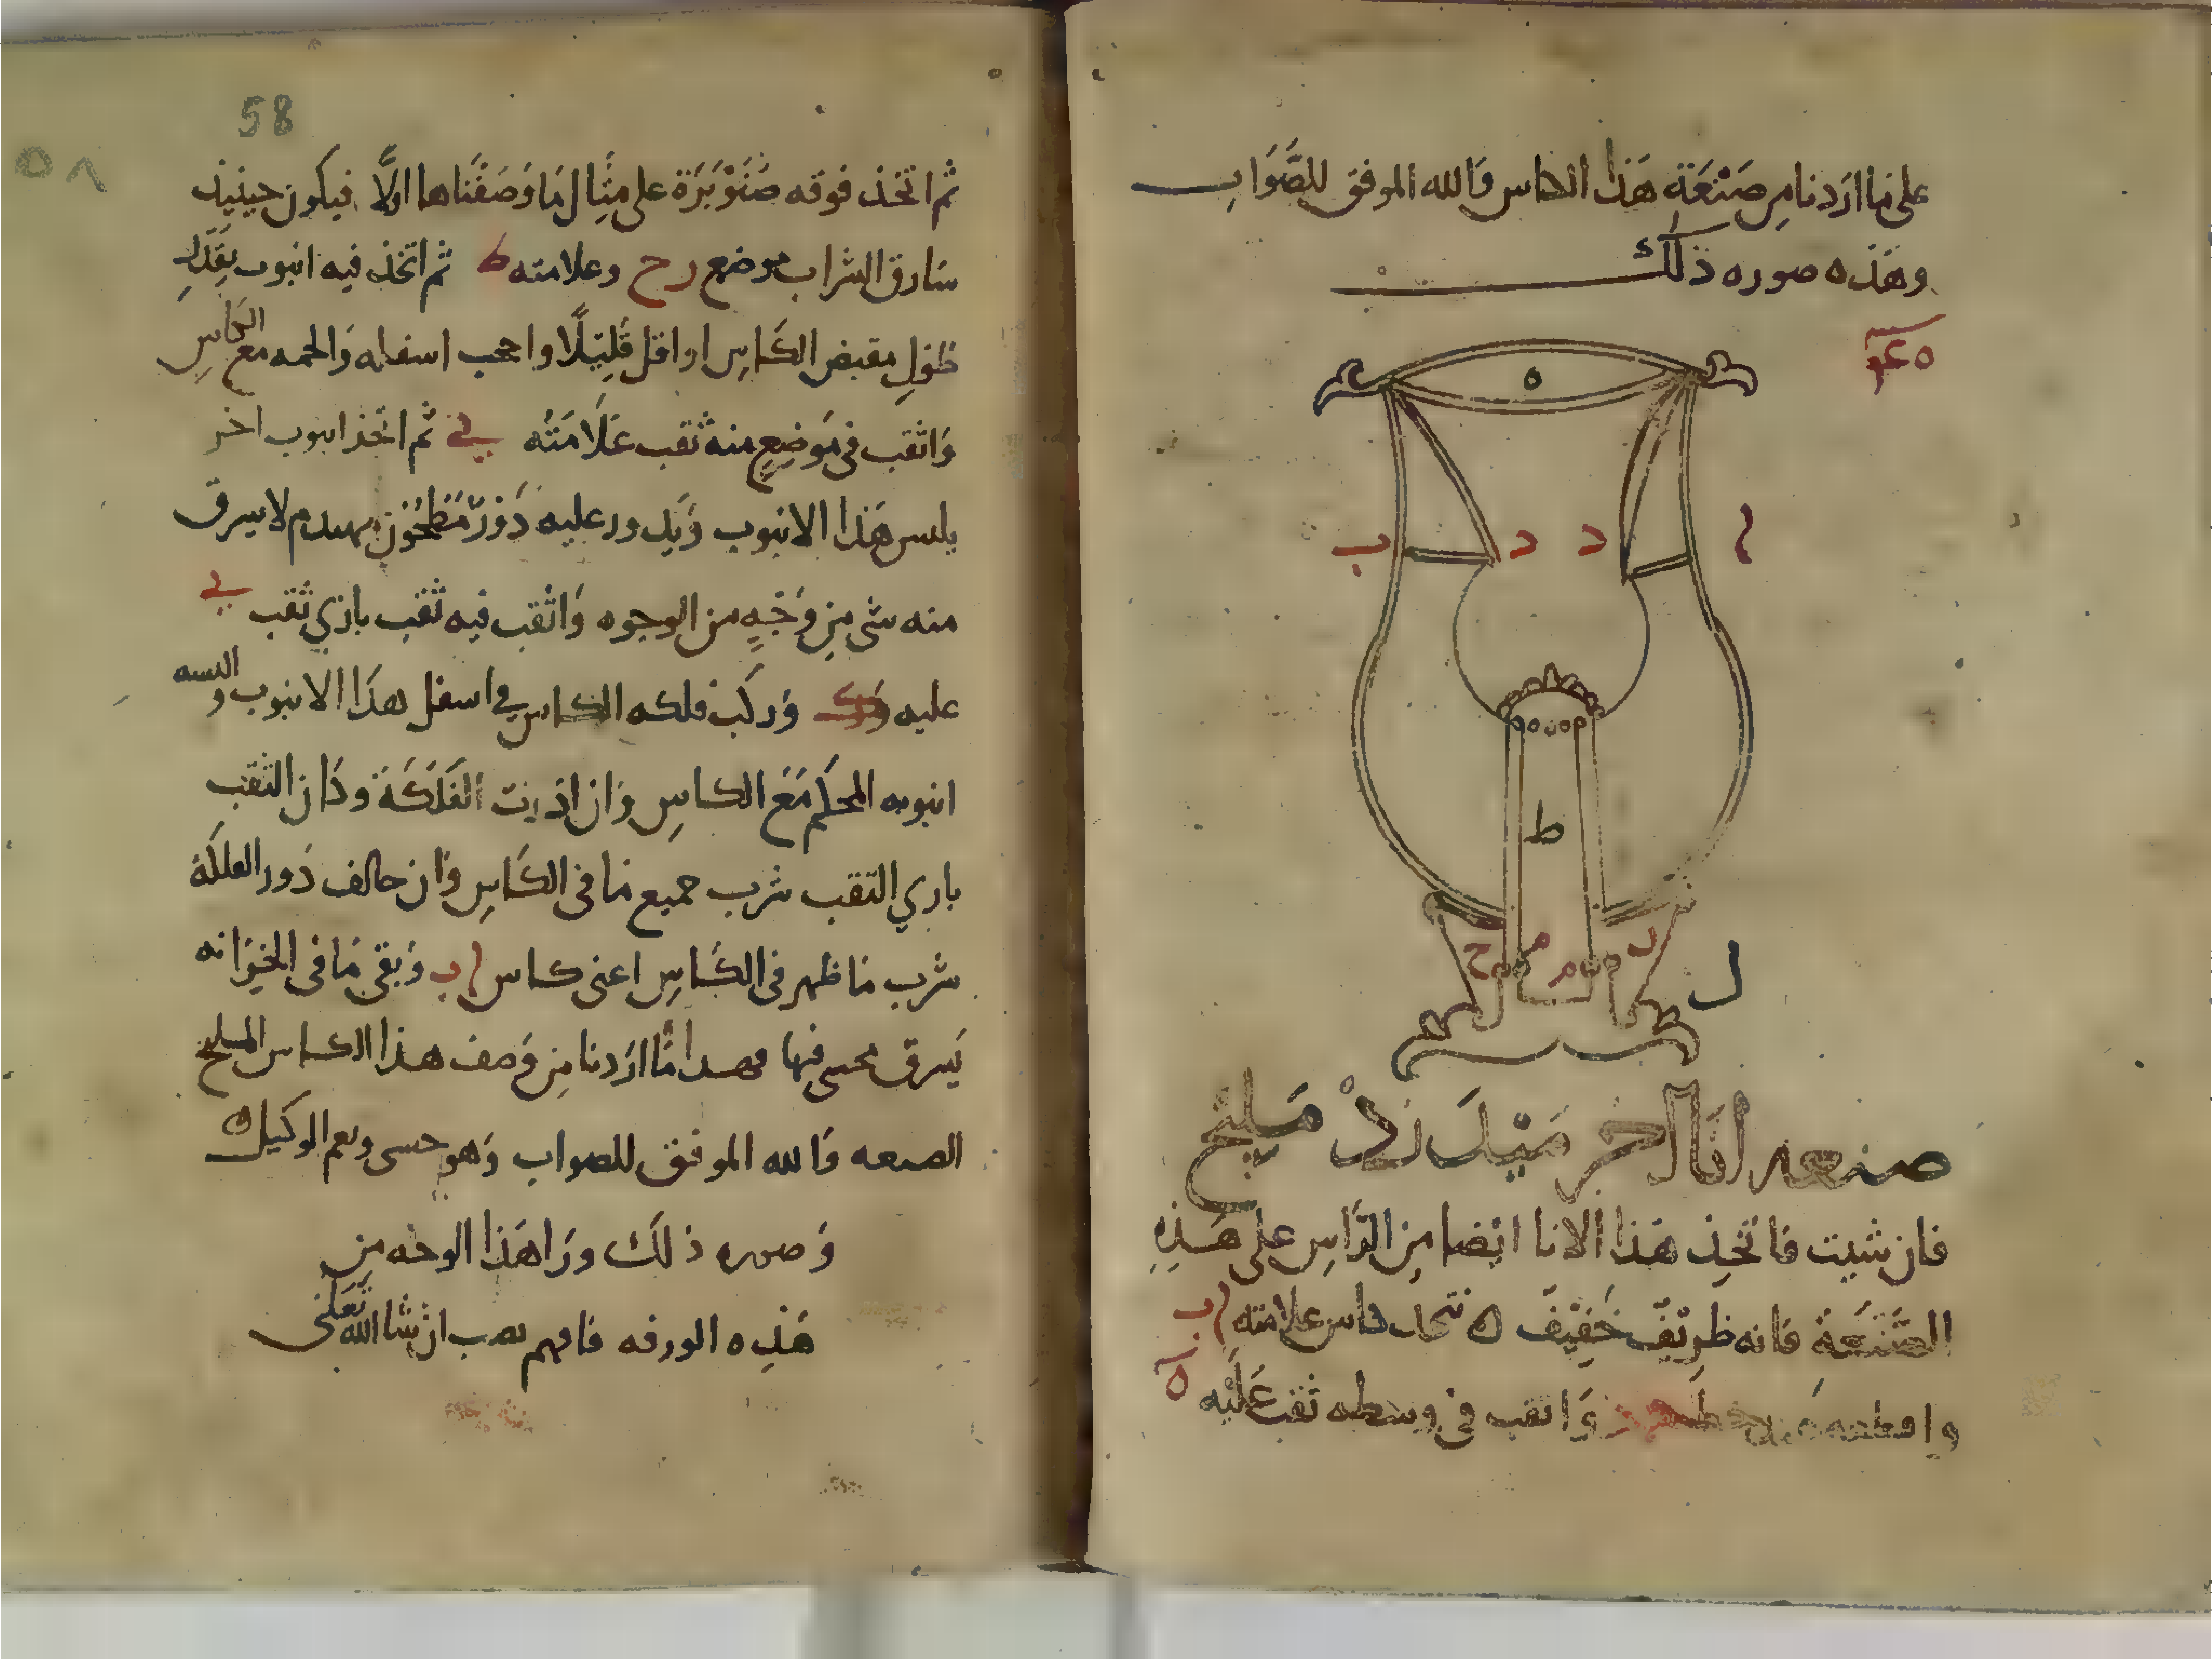 على ما اردنا من صَنْعَةِ هَذا الكاس وَالله الموفق للصَّوَاب
وهَذه صوره ذلك
ه
ب د د ا
ط
ح م م د
ل
صنعه انا اخر مَيْلَ رَدْ مَليح
فان شيت فاتخِذ هَذا الانا ايْضا مِن الرَّاسِ على هَذِهِ
الصَّنعَةِ فانه ظريْف خَفِيْف ه نتخذ كاس علامته اب
واقطعه وَاثقب في وسطه ثقب عَليْه ه
58
٥٨
ثم اتخذ فوقه صَنَوْبَرَة على مِثَال مَا وَصَفْنَاها اولًا فيكون حينيذ
سَارق الشراب موضع رح وعلامته ط ثم اتخذ فيه انبوب بقَدَرِ
طولِ مقبض الكَاسِ او اقل قَلِيْلًا واحجب اسفله وَالحمه مع الكاسِ
وَاثقب في مَوضِعٍ منه ثقب عَلَامَتُه ي ثم اتخذ انبوب اخر
يلبس هَذا الانبوب وَيدور عليه دَوْرٌ مَطْحُوْن مهندم لا يسرق
منه شى مِن وَجْهٍ من الوجوه وَاثقب فيه ثقب بازي ثقب ي
عليه وَركب فلكه الكاس في اسفل هذا الانبوب والبسه
انبوبه المحكم مَعَ الكاسِ وَان اذرت الفَلكَةَ وكان الثقب
بازي الثقب شرب جميع مَا في الكَاسِ وَان خالف دَور الفلكة
شرب مَا ظهر في الكَاسِ اعنى كاس اب وَبقى مَا في الخِزَانه
يَسرق محبس فيها فهذا مَّا اردنا مِن وَصف هذا الكاس المليح
الصنعه وَالله الموفق للصواب وَهو حسبى ونعم الوكيل ه
وَصوره ذلك وَرَا هَذا الوجه مِن
هَذِه الورقه فافهم تصب ان شَا الله تَعَلى